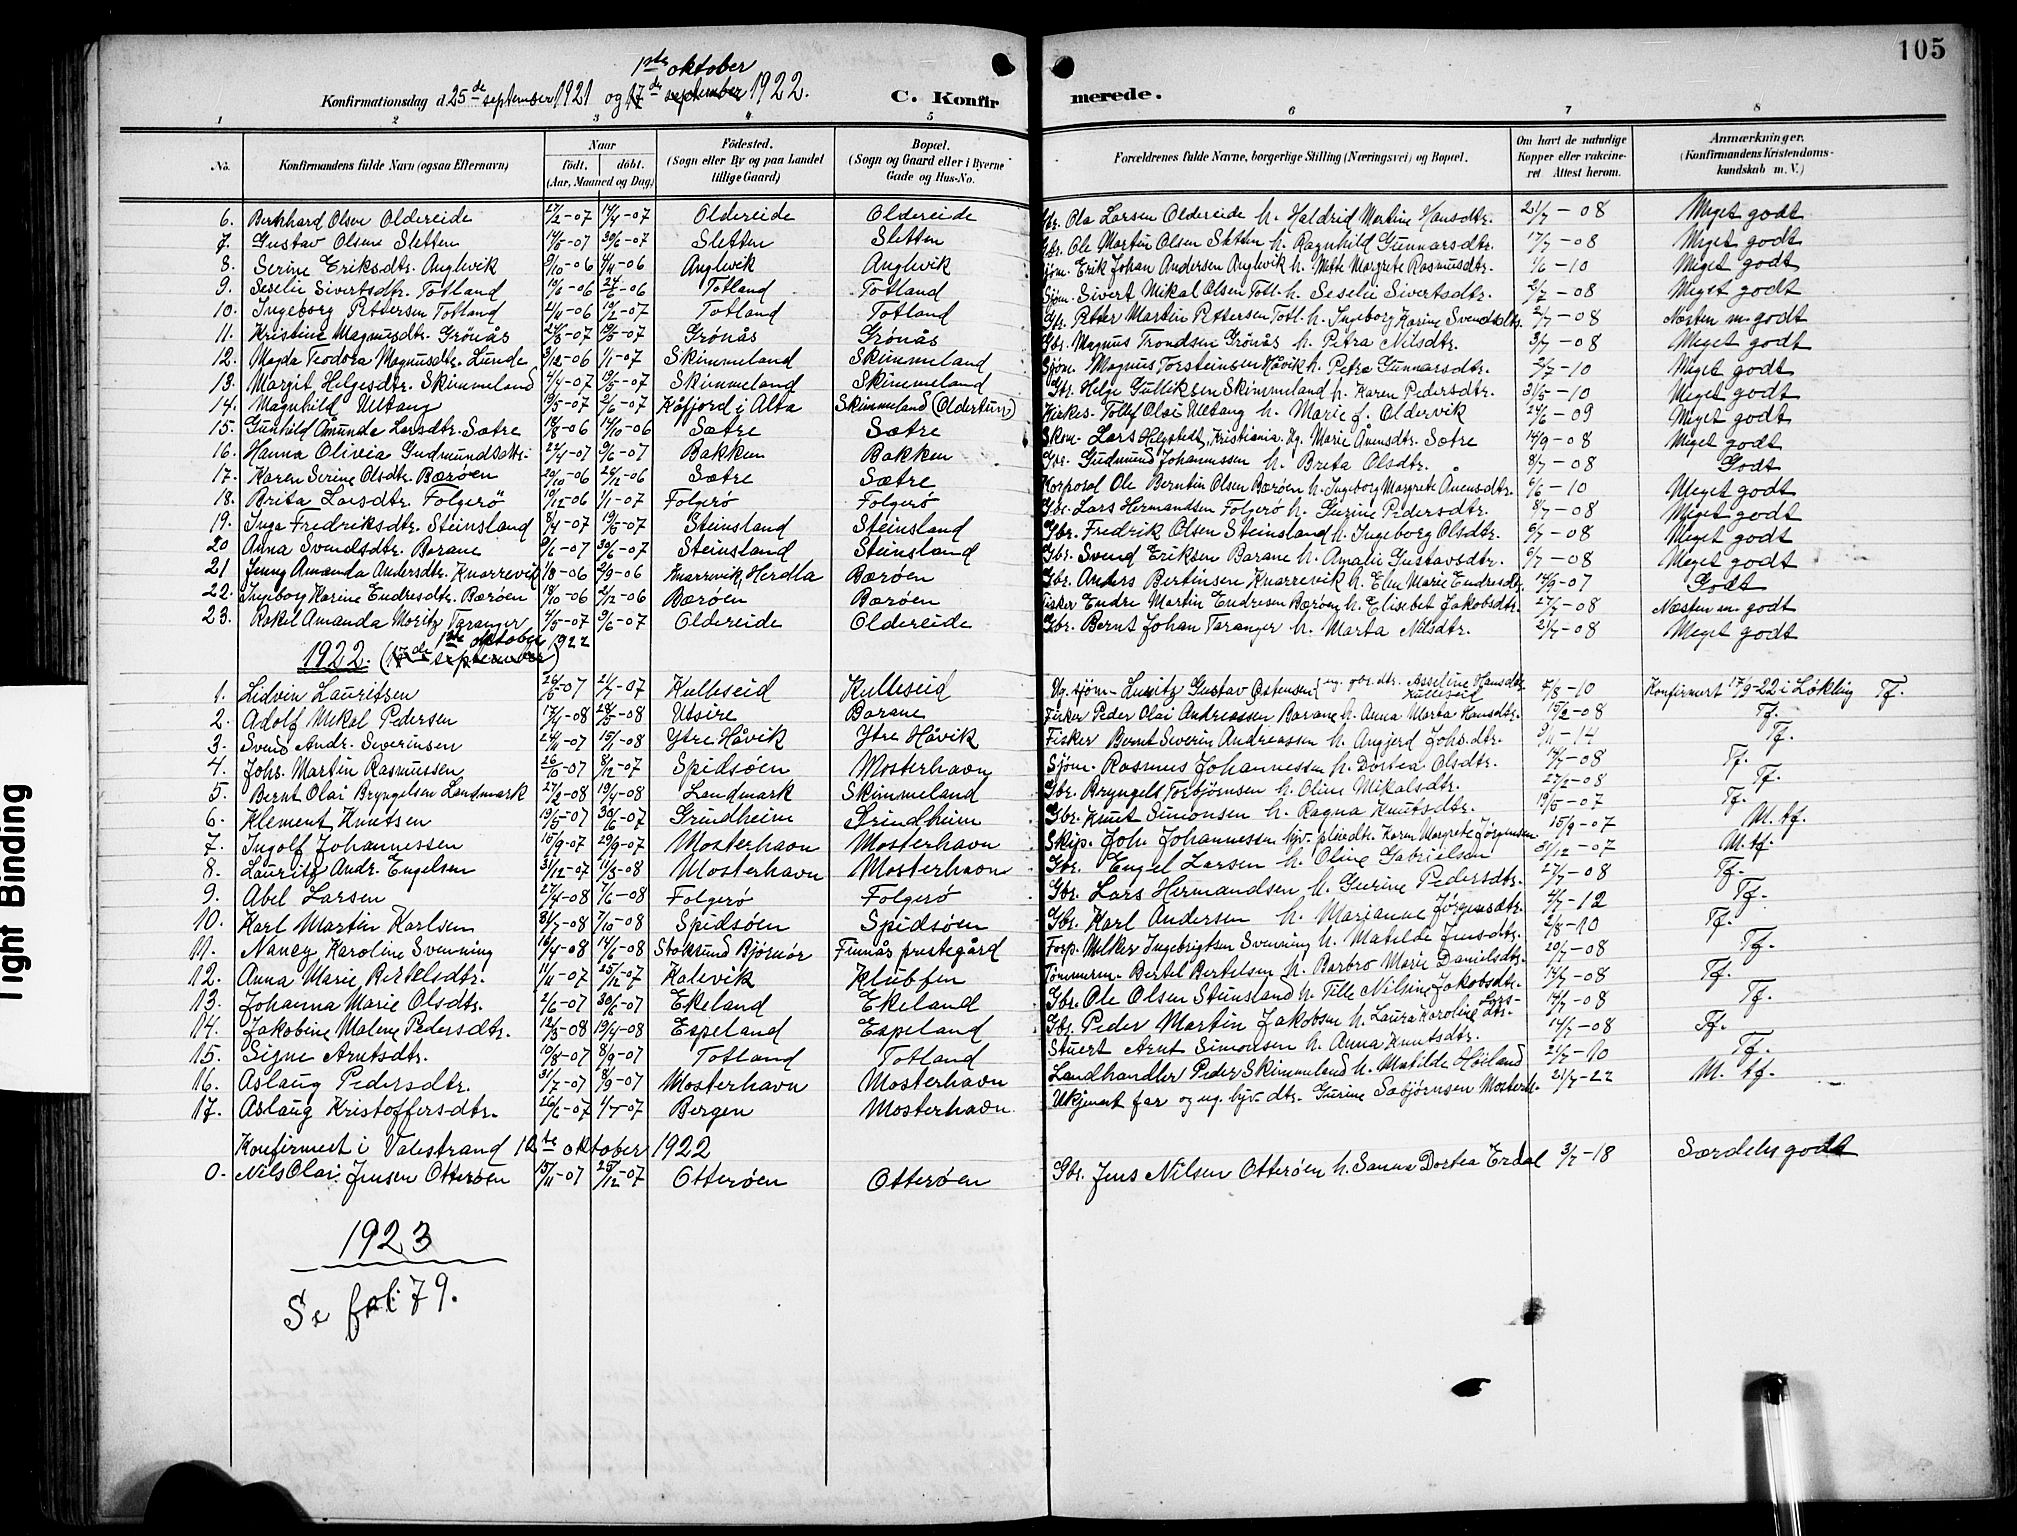 105
1ste oktober
Konfirmationsdag d 25de september 1921 og 17de september 1922.
C. Konfirmerede.
1 2 3 4 5 6 7 8
No. Konfirmandens fulde Navn (ogsaa Efternavn) Naar født. døbt. (Aar, Maaned og Dag) Fødested. (Sogn eller By og paa Landet tillige Gaard) Bopæl. (Sogn og Gaard eller i Byerne Gade og Hus-No. Forældrenes fulde Navne, borgerlige Stilling (Næringsvei) og Bopæl. Om havt de naturlige Kopper eller vakcineret Attest herom. Anmærkninger. (Konfirmandens Kristendomskundskab m. V.)
6. Bernhard Olsen Oldereide 27/2-07 14/4-07 Oldereide Oldereide Gbr. Ola Larsen Oldereide h. Haldrid Martine Hansdtr. 21/7-08 Meget godt
7. Gustav Olsen Sletten 14/5-07 30/6-07 Sletten Sletten Gbr. Ole Martin Olsen Sletten h. Ragnhild Gunnarsdtr. 17/7-08 Meget godt
8. Serine Eriksdtr. Anglevik 9/10-06 4/11-06 Anglevik Anglevik Sjøm. Erik Johan Andersen Anglevik h. Mette Margrete Rasmusdtr. 1/6-10 Meget godt
9. Seselie Sivertsdtr. Totland -06 -06 Totland Totland Sjøm. Sivert Mikal Olsen Totl. h. Seselie Sivertsdtr. 2/7-08 Meget godt
10. Ingeborg Pettersen Totland -06 -07 Totland Totland Gbr. Petter Martin Pettersen Totl. h. Ingeborg Karine Svendsdtr. 2/7-08 Næsten m. godt
11. Kristine Magnusdtr. Grönås -07 19/5-07 Grönås Grönås Gbr. Magnus Trondsen Grönås h. Petra Nilsdtr. 3/7-08 Meget godt
12. Magda Teodora Magnusdtr. Lunde 3/12-06 1/1-07 Skimmeland Skimmeland Sjøm. Magnus Torsteinsen Håvik h. Petra Gunnarsdtr. 2/7-10 Meget godt
13. Margit Helgesdtr. Skimmeland 4/4-07 19/5-07 Skimmeland Skimmeland Gbr. Helge Gulliksen Skimmeland h. Karen Pedersdtr. 31/5-10 Meget godt
14. Magnhild Ultang 19/5-07 2/6-07 Kåfjord i Alta Skimmeland (Oldertun) Kirkes. Tollef Olai Ultang h. Marie f. Oldervik 24/6-09 Meget godt
15. Gunhild Amunda Larsdtr. Sætre 18/8-06 14/10-06 Sætre Sætre Skom. Lars Helgstedt, Kristiania. Ug. Marie Ånensdtr. Sætre 14/9-08 Meget godt
16. Hanna Olivia Gudmundsdtr. 22/4-07 9/6-07 Bakken Bakken Gbr. Gudmund Johannessen h. Breta Olsdtr. 8/7-08 Godt
17. Karen Serine Olsdtr. Bærøen 20/10-06 -06 Sætre Sætre Korporal Ole Berntin Olsen Bærøen h. Ingeborg Margrete Ånensdtr. 6/6-10 Meget godt
18. Brita Larsdtr. Folgerö 10/12-06 1/1-07 Folgerø Folgerö Gbr. Lars Hermandsen Folgerö h. Gurine Pedersdtr. 8/7-08 Meget godt
19. Inga Fredriksdtr. Steinsland 8/4-07 19/5-07 Steinsland Steinsland Gbr. Fredrik Olsen Steinsland h. Ingeborg Olsdtr. 6/7-08 Meget godt
20 Anna Svendsdtr. Barane 9/6-07 30/6-07 Steinsland Steinsland Gbr. Svend Eriksen Barane h. Amalie Gustavsdtr. 6/7-08 Meget godt
21 Jenny Amanda Andersdtr. Knarrevik 1/8-06 2/9-06 Knarrevik, Herdla Bærøen Gbr. Anders Bertinsen Knarrevik h. Elen Marie Endresdtr. 14/9-07 Godt
22. Ingeborg Karine Endresdtr. Bærøen 18/10-06 2/12-06 Bærøen Bærøen Fisker Endre Martin Endresen Bærøen h. Elisebet Jakobsdtr. 27/7-08 Næsten m. godt
23. Rakel Amanda Moritz Taranger 4/5-07 9/6-07 Oldereide Oldereide Gbr. Bernt Johan Taranger h. Marta Nilsdtr. 21/7-08 Meget godt
1922. (17de september) 1ste oktober 1922
1. Lidvin Lauritzen 26/5-07 21/7-07 Kulleseid Kulleseid Ug. sjøm. Lauritz Gustav Østensen (ug. gbr. dtr. Asseline Hansdtr. Kulleseid 5/8-10 Konfirmert 17/9-22 i Løkling Tf.
2. Adolf Mikal Pedersen 17/4-08 28/5-08 Utsire Barane Fisker Peder Olai Andreassen Barane h. Anna Marta Hansdtr. 15/2-08 Tf.
3. Svend Andr. Severinsen 24/11-07 15/1-08 Ytre Håvik Ytre Håvik Fisker Bernt Severin Andreassen h. Angjerd Johs.dtr. -14 Tf.
4. Johs. Martin Rasmussen 26/10-07 8/12-07 Spidsøen Mosterhavn Sjøm. Rasmus Johannessen h. Dortea Olsdtr. 14/7-08 Tf.
5. Bernt Olai Bryngelsen Landmark 27/2-08 19/4-08 Landmark Skimmeland Gbr. Bryngels Torbjørnsen h. Oline Mikalsdtr. -08 Tf.
6. Klement Knutsen 19/5-07 30/6-07 Grindheim Grindheim Gbr. Knut Simonsen h. Ragna Knutsdtr. 19/5-07 Tf.
7. Ingolf Johannessen 15/9-07 29/9-07 Mosterhavn Mosterhavn Skip. Johs. Johannessen Karen Margrete Jørgensen 15/9-07 M. tf.
8. Lauritz Andr. Engelsen 31/12-07 11/3-08 Mosterhavn Mosterhavn Gbr. Engel Larsen h. Oline Gabrielsen 31/12-07 M. tf.
9. Abel Larsen 27/4-08 7/6-08 Folgerø Folgerö Gbr. Lars Hermandsen h. Gurine Pedersdtr. 27/7-08 Tf.
10. Karl Martin Karlsen 31/7-08 7/10-08 Spidsöen Spidsöen Gbr. Karl Andersen h. Marianne Jørgensdtr. -12 Tf.
11. Nancy Karoline Svenning 16/4-08 14/6-08 Stoksund Bjørnör Finnås prestegård Forp. Melker Ingebrigtsen Svenning h. Matilde Jensdtr. 2/8-10 Tf.
12. Anna Marie Bertelsdtr. 11/11-07 25/12-07 Kalevik Klubben Tømmerm. Bertel Bertelsen h. Barbro Marie Danielsdtr. 20/7-08 Tf.
13. Johanna Marie Olsdtr. 2/6-07 30/6-07 Ekeland Ekeland Gbr. Ole Olsen Steinsland h. Tille Nilsine Jakobsdtr. 14/7-08 Tf.
14. Jakobine Malene Pedersdtr. 12/3-08 19/4-08 Espeland Espeland Gbr. Peder Martin Jakobsen h. Laura Karoline Larsdtr. 14/7-08 Tf.
15. Signe Arntsdtr. 10/8-07 8/9-07 Totland Totland Stuert Arnt Simonsen h. Anna Knutsdtr. 14/7-08 Tf.
16. Aslaug Pedersdtr. 31/7-07 8/9-07 Mosterhavn Mosterhavn Landhandler Peder Skimmeland h. Matilde Höiland 21/7-10 Tf.
17. Aslaug Kristoffersdtr. 26/6-07 4/7-07 Bergen Mosterhavn. Ukjent far og ug. dtr. Gurine Sæbjørnsen Mosterh. 21/7-22 M. tf.
Konfirmert i Valestrand 1ste oktober 1922
0. Nils Olai Jensen Otterøen 15/11-07 25/12-07 Otterøen Otterøen Gbr. Jens Nilsen Otterøen h. Sanna Dortea Erdal 3/7-18 Særdeles godt
1923
Se fol: 79.
Tight Binding